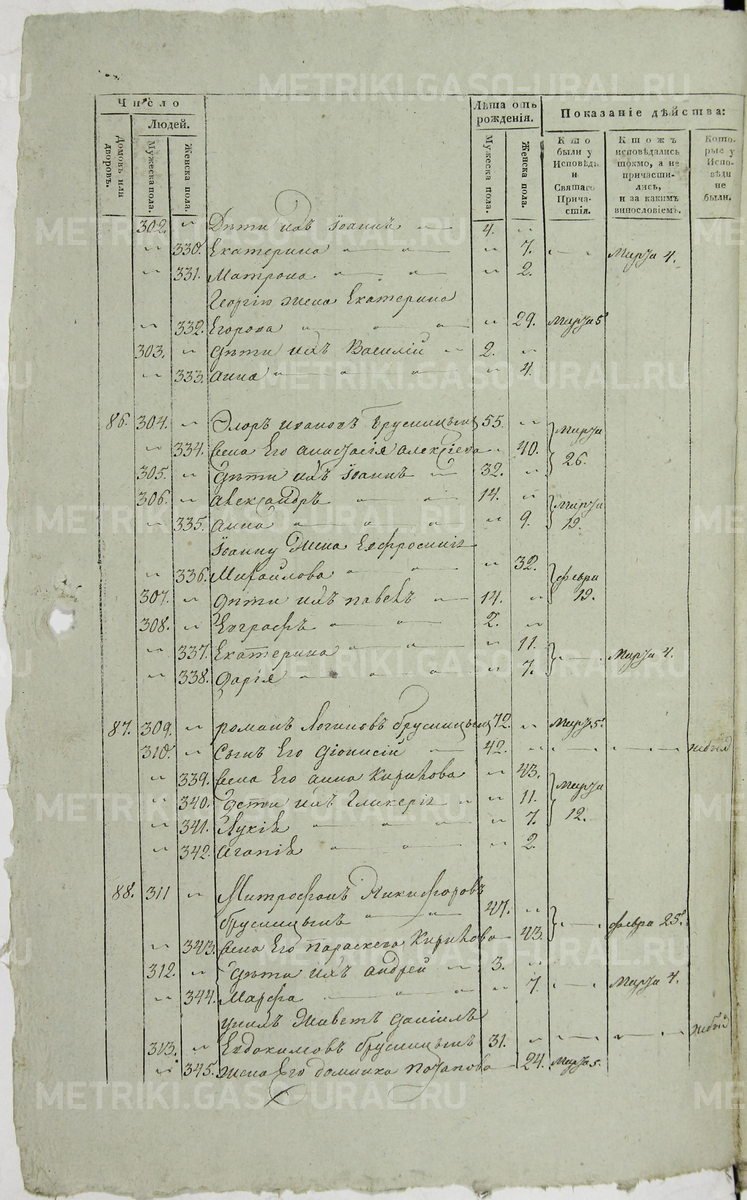 METRIKI.GASO-URAL.RU
Число
Людей.
Домовъ или дворовъ.
Мужеска пола.
Женска пола.
Лѣта отъ рожденія.
Мужеска пола.
Женска пола.
Показаніе дѣйства:
Кто были у Исповѣди и Святаго Причастія.
Ктожъ исповѣдались токмо, а не причастились, и за какимъ винословіемъ.
Которые у Исповѣди не были.
302. Дѣти ихъ Іоаннъ 4.
330. Екатерина 7. Марта 4.
331. Матрона 2.
Георгію жена Екатерина
332. Егорова 29. Марта 5
303. Дѣти ихъ Василій 2.
333. Анна 4.
86. 304. Флоръ Ивановъ Брусницынъ 55. Марта
334. Жена Его Анастасія Алексіева 40. 26.
305. Дѣти ихъ Іоаннъ 32.
306. Александръ 14. Марта
335. Анна 9. 12.
Іоанну Жена Евфросинія
336. Михайлова 32. Февра
307. Дѣти ихъ Павелъ 14. 19.
308. Евграфъ 2.
337. Екатерина 11. Марта 4.
338. Дарія 7.
87. 309. Романъ Логиновъ Брусницынъ 72. Марта 5.
310. Сынъ Его Діонисій 42. небылъ
339. Жена Его Анна Кирилова 43. Марта
340. Дѣти ихъ Гликерія 11. 12.
341. Лукія 7.
342. Агапія 2.
88. 311 Митрофанъ Никифоровъ
Брусницынъ 47. Февра 25.
343. Жена Его Параскева Кирилова 43.
312. Дѣти ихъ Андрей 3.
344. Марфа 7. Марта 4.
У нихъ Живетъ Даніилъ
313. Евдокимовъ Брусницынъ 31. небылъ
345. Жена Его Домника Потапова 24. Марта 5.